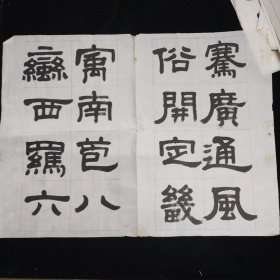 騫廣通風
俗開定畿
寓南苞八
蠻西羈六